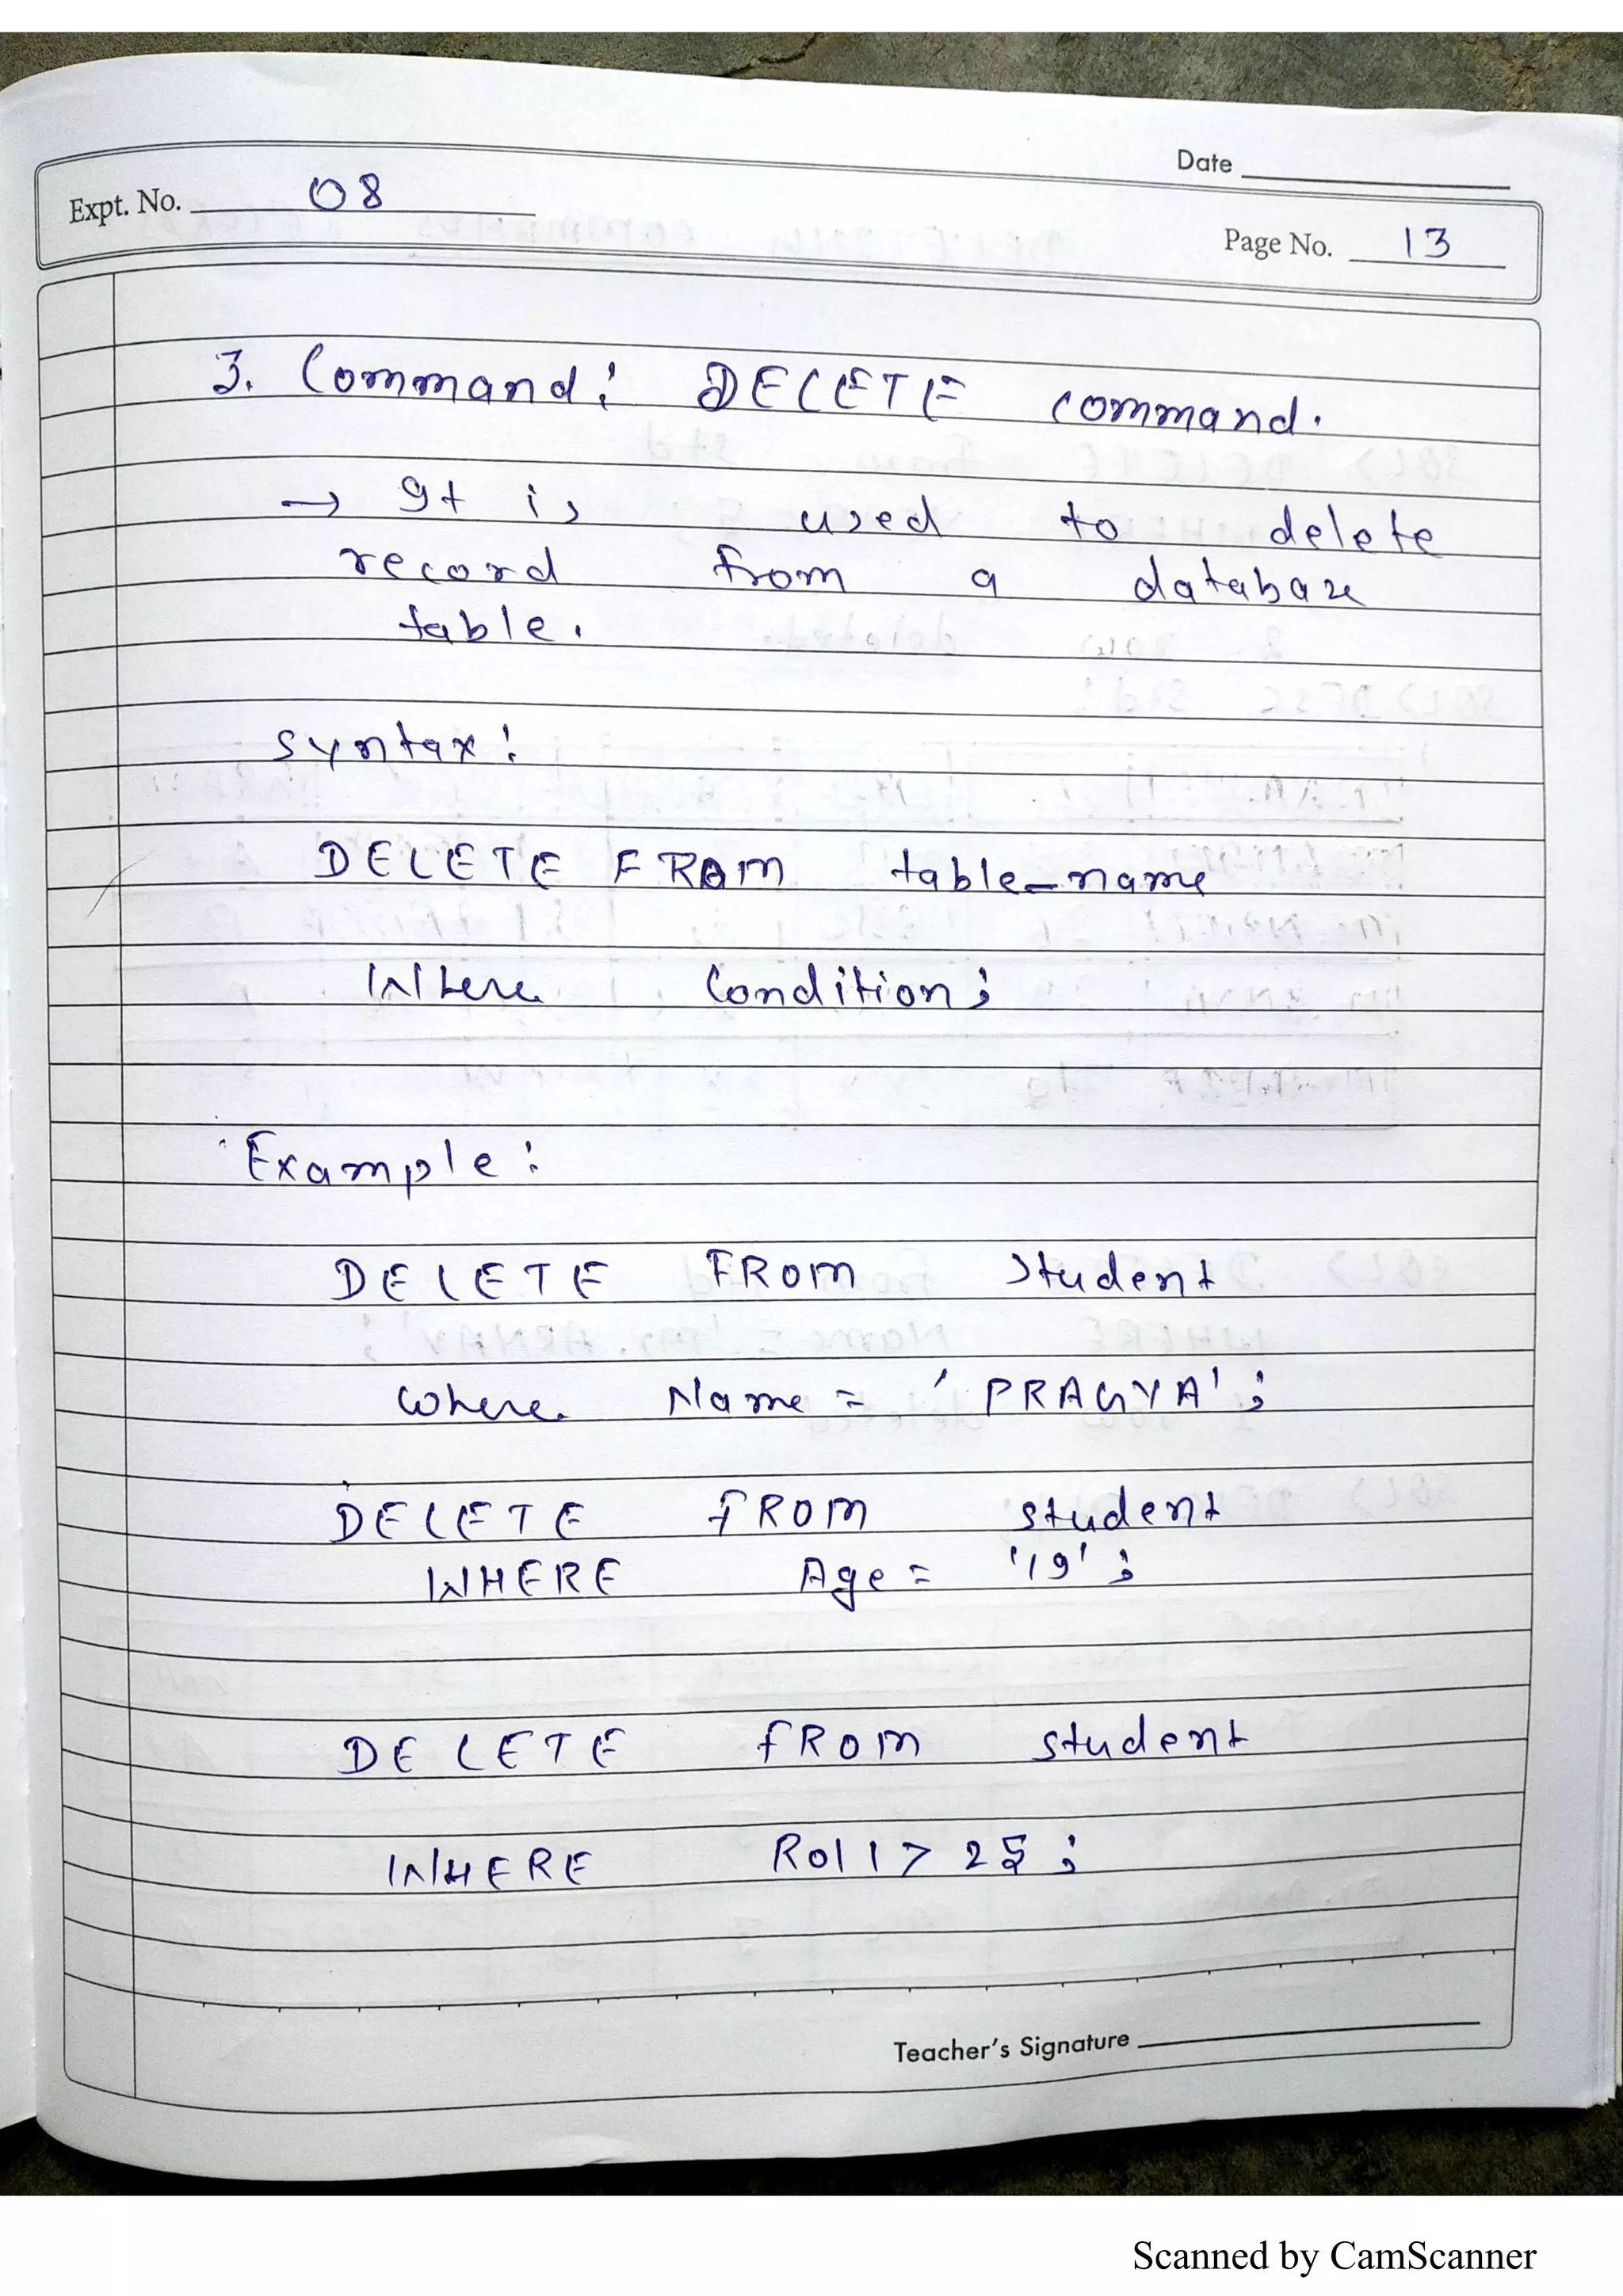 Date
Expt. No. 08
Page No. 13
3. Command: DELETE command.
→ It is used to delete
record from a database
table.
Syntax:
DELETE FROM table_name
Where Condition;
Example:
DELETE FROM Student
where Name = 'PRAGYA';
DELETE FROM student
WHERE Age = '19';
DELETE fROM student
WHERE Roll > 25;
Teacher's Signature
Scanned by CamScanner